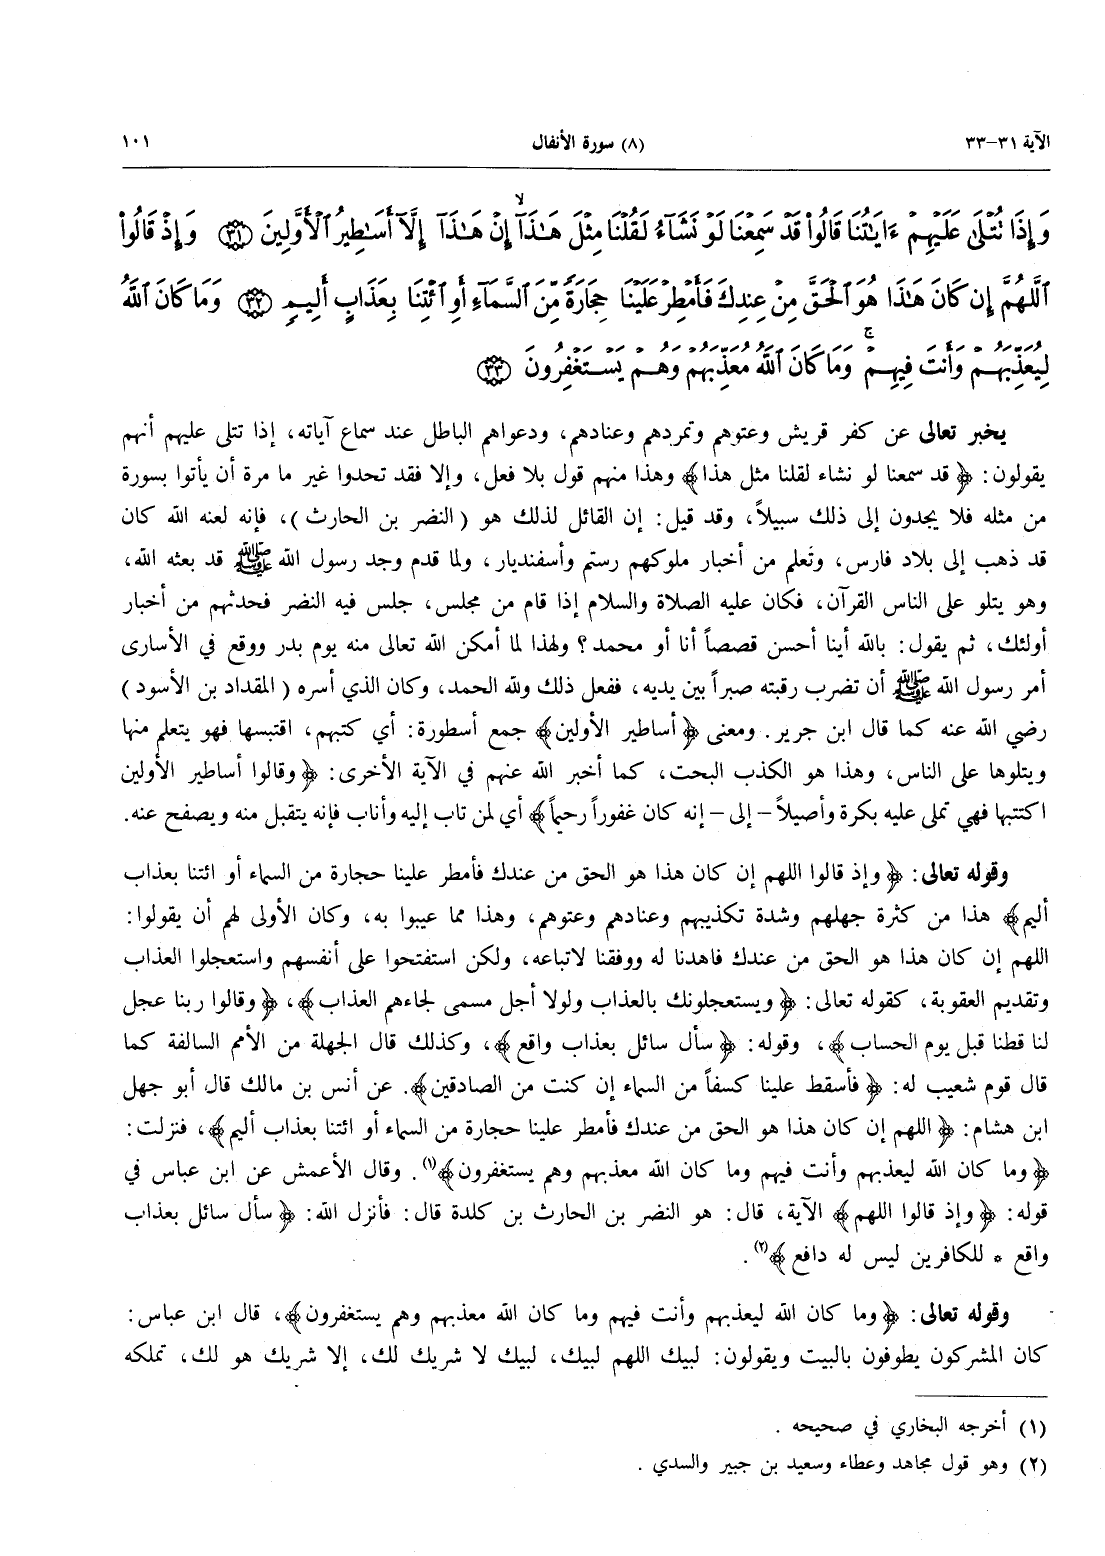 الآية ٣١-٣٣ (٨) سورة الأنفال ١٠١
وَإِذَا تُتْلَىٰ عَلَيْهِمْ ءَايَٰتُنَا قَالُوا۟ قَدْ سَمِعْنَا لَوْ نَشَآءُ لَقُلْنَا مِثْلَ هَٰذَآ ۙ إِنْ هَٰذَآ إِلَّآ أَسَٰطِيرُ ٱلْأَوَّلِينَ ﴿٣١﴾ وَإِذْ قَالُوا۟
ٱللَّهُمَّ إِن كَانَ هَٰذَا هُوَ ٱلْحَقَّ مِنْ عِندِكَ فَأَمْطِرْ عَلَيْنَا حِجَارَةً مِّنَ ٱلسَّمَآءِ أَوِ ٱئْتِنَا بِعَذَابٍ أَلِيمٍ ﴿٣٢﴾ وَمَا كَانَ ٱللَّهُ
لِيُعَذِّبَهُمْ وَأَنتَ فِيهِمْ ۚ وَمَا كَانَ ٱللَّهُ مُعَذِّبَهُمْ وَهُمْ يَسْتَغْفِرُونَ ﴿٣٣﴾
يخبر تعالى عن كفر قريش وعتوهم وتمردهم وعنادهم، ودعواهم الباطل عند سماع آياته، إذا تتلى عليهم أنهم
يقولون: ﴿قد سمعنا لو نشاء لقلنا مثل هذا﴾ وهذا منهم قول بلا فعل، وإلا فقد تحدوا غير ما مرة أن يأتوا بسورة
من مثله فلا يجدون إلى ذلك سبيلاً، وقد قيل: إن القائل لذلك هو (النضر بن الحارث)، فإنه لعنه الله كان
قد ذهب إلى بلاد فارس، وتَعلم من أخبار ملوكهم رستم وأسفنديار، ولما قدم وجد رسول الله ﷺ قد بعثه الله،
وهو يتلو على الناس القرآن، فكان عليه الصلاة والسلام إذا قام من مجلس، جلس فيه النضر فحدثهم من أخبار
أولئك، ثم يقول: بالله أينا أحسن قصصاً أنا أو محمد؟ ولهذا لما أمكن الله تعالى منه يوم بدر ووقع في الأسارى
أمر رسول الله ﷺ أن تضرب رقبته صبراً بين يديه، ففعل ذلك ولله الحمد، وكان الذي أسره (المقداد بن الأسود)
رضي الله عنه كما قال ابن جرير. ومعنى ﴿أساطير الأولين﴾ جمع أسطورة: أي كتبهم، اقتبسها فهو يتعلم منها
ويتلوها على الناس، وهذا هو الكذب البحت، كما أخبر الله عنهم في الآية الأخرى: ﴿وقالوا أساطير الأولين
اكتتبها فهي تملى عليه بكرة وأصيلاً – إلى – إنه كان غفوراً رحيماً﴾ أي لمن تاب إليه وأناب فإنه يتقبل منه ويصفح عنه.
وقوله تعالى: ﴿وإذ قالوا اللهم إن كان هذا هو الحق من عندك فأمطر علينا حجارة من السماء أو ائتنا بعذاب
أليم﴾ هذا من كثرة جهلهم وشدة تكذيبهم وعنادهم وعتوهم، وهذا مما عيبوا به، وكان الأولى لهم أن يقولوا:
اللهم إن كان هذا هو الحق من عندك فاهدنا له ووفقنا لاتباعه، ولكن استفتحوا على أنفسهم واستعجلوا العذاب
وتقديم العقوبة، كقوله تعالى: ﴿ويستعجلونك بالعذاب ولولا أجل مسمى لجاءهم العذاب﴾، ﴿وقالوا ربنا عجل
لنا قطنا قبل يوم الحساب﴾، وقوله: ﴿سأل سائل بعذاب واقع﴾، وكذلك قال الجهلة من الأمم السالفة كما
قال قوم شعيب له: ﴿فأسقط علينا كسفاً من السماء إن كنت من الصادقين﴾. عن أنس بن مالك قال أبو جهل
ابن هشام: ﴿اللهم إن كان هذا هو الحق من عندك فأمطر علينا حجارة من السماء أو ائتنا بعذاب أليم﴾، فنزلت:
﴿وما كان الله ليعذبهم وأنت فيهم وما كان الله معذبهم وهم يستغفرون﴾(١). وقال الأعمش عن ابن عباس في
قوله: ﴿وإذ قالوا اللهم﴾ الآية، قال: هو النضر بن الحارث بن كلدة قال: فأنزل الله: ﴿سأل سائل بعذاب
واقع * للكافرين ليس له دافع﴾(٢).
وقوله تعالى: ﴿وما كان الله ليعذبهم وأنت فيهم وما كان الله معذبهم وهم يستغفرون﴾، قال ابن عباس:
كان المشركون يطوفون بالبيت ويقولون: لبيك اللهم لبيك، لبيك لا شريك لك، إلا شريك هو لك، تملكه
(١) أخرجه البخاري في صحيحه .
(٢) وهو قول مجاهد وعطاء وسعيد بن جبير والسدي .